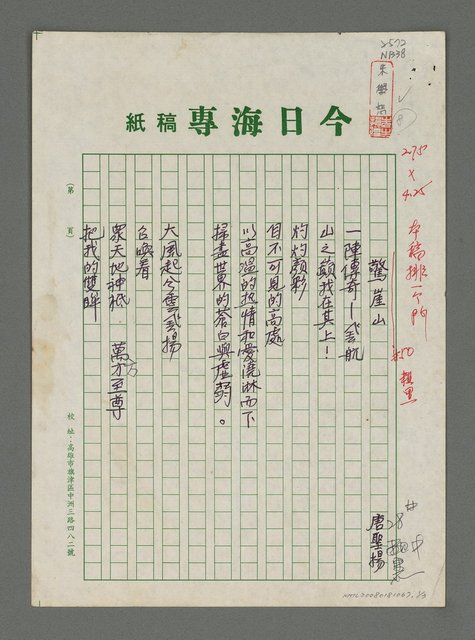 2572
NB38
今日海專稿紙
275
x
425
本稿排一个門
驚崖山
唐聖揚
一陣傳奇—飛航
山之巔我在其上！
灼灼顏彩
自不可見的高處
以高溫的熱情和愛澆淋而下
掃盡世界的蒼白與虛弱。
大風起兮雲飛揚
召喚着
眾天地神祇 萬方至尊
把我的雙眸
（第 頁）
校址：高雄市旗津區中洲三路四八二號
NMTL20080181067